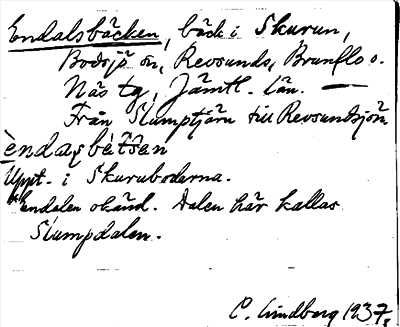 Endalsbäcken, bäck i Skurun,
Bodsjö sn, Revsunds, Brunflo o.
Näs tg, Jämtl. län. —
Från Slumptjärn till Revsundssjön.
èndasbètsen
Uppt. i Skurubodarna.
endalen okänd. Dalen här kallas
Slumpdalen.
C. Lindberg 1937.